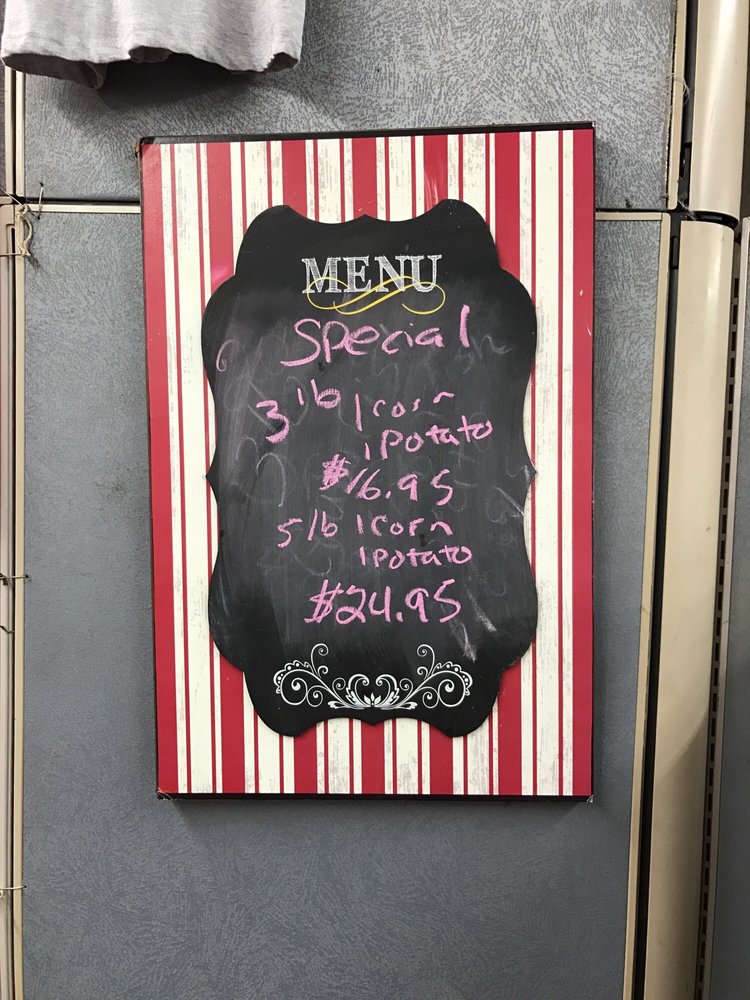 MENU
Special
3 lb 1 corn
1 Potato
$16.95
5 lb 1 corn
1 Potato
$24.95